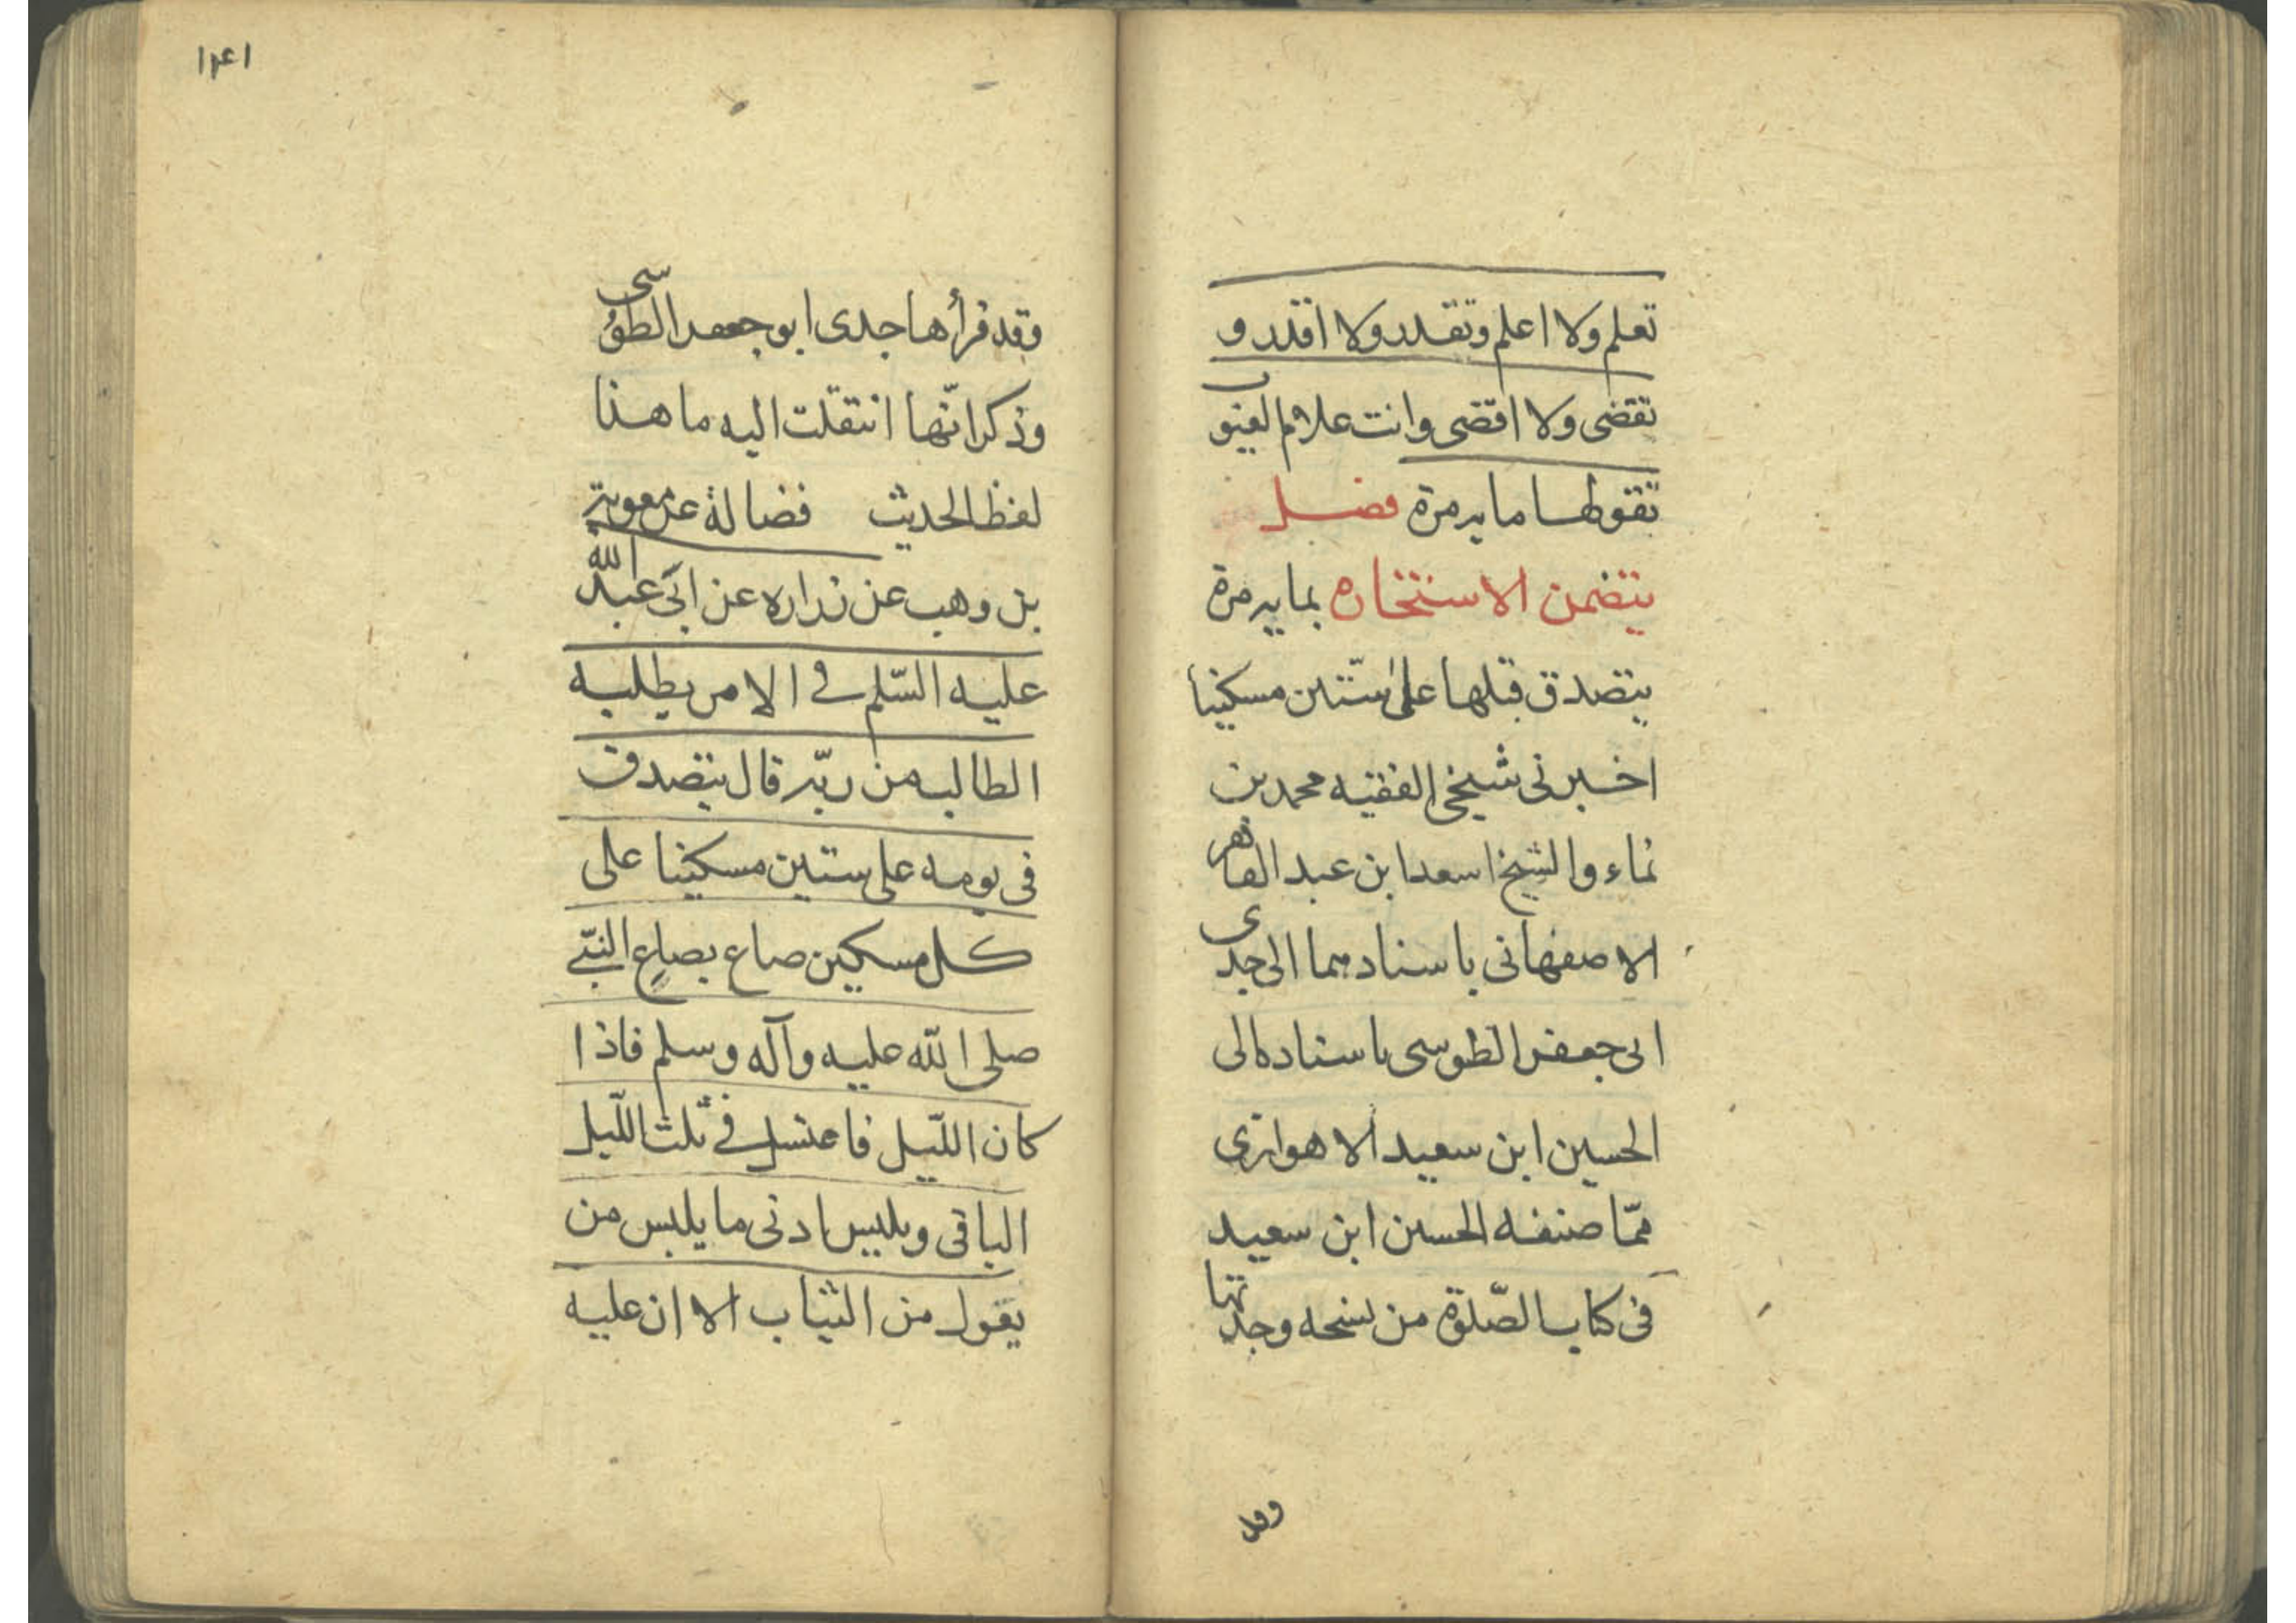 تعلم ولا اعلم وتقدر ولا اقدر و
تقضى ولا اقضى وانت علام الغيوب
تقولها ماية مرة فصل
يتضمن الاستخاره بماية مرة
يتصدق قبلها على ستين مسكينا
اخبرنى شيخى الفقيه محمد بن
نماء والشيخ اسعد ابن عبد القاهر
الاصفهانى باسنادهما الى جدى
ابى جعفر الطوسى باسناده الى
الحسين ابن سعيد الاهوازى
ممّا صنفه الحسين ابن سعيد
فى كتاب الصّلوة من نسخه وجدتها
وقد
١٤١
وقد قرأها جدى ابو جعفر الطوسى
وذكر انّها انتقلت اليه ما هذا
لفظ الحديث فضالة عن معوية
بن وهب عن زراره عن ابى عبد الله
عليه السّلم فى الامر يطلبه
الطالب من ربّه قال يتصدق
فى يومه على ستين مسكينا على
كل مسكين صاع بصاع النبّى
صلى الله عليه وآله وسلم فاذا
كان اللّيل فاغتسل فى ثلث اللّيل
الباقى ويلبس ادنى ما يلبس من
يقول من الثياب الا ان عليه